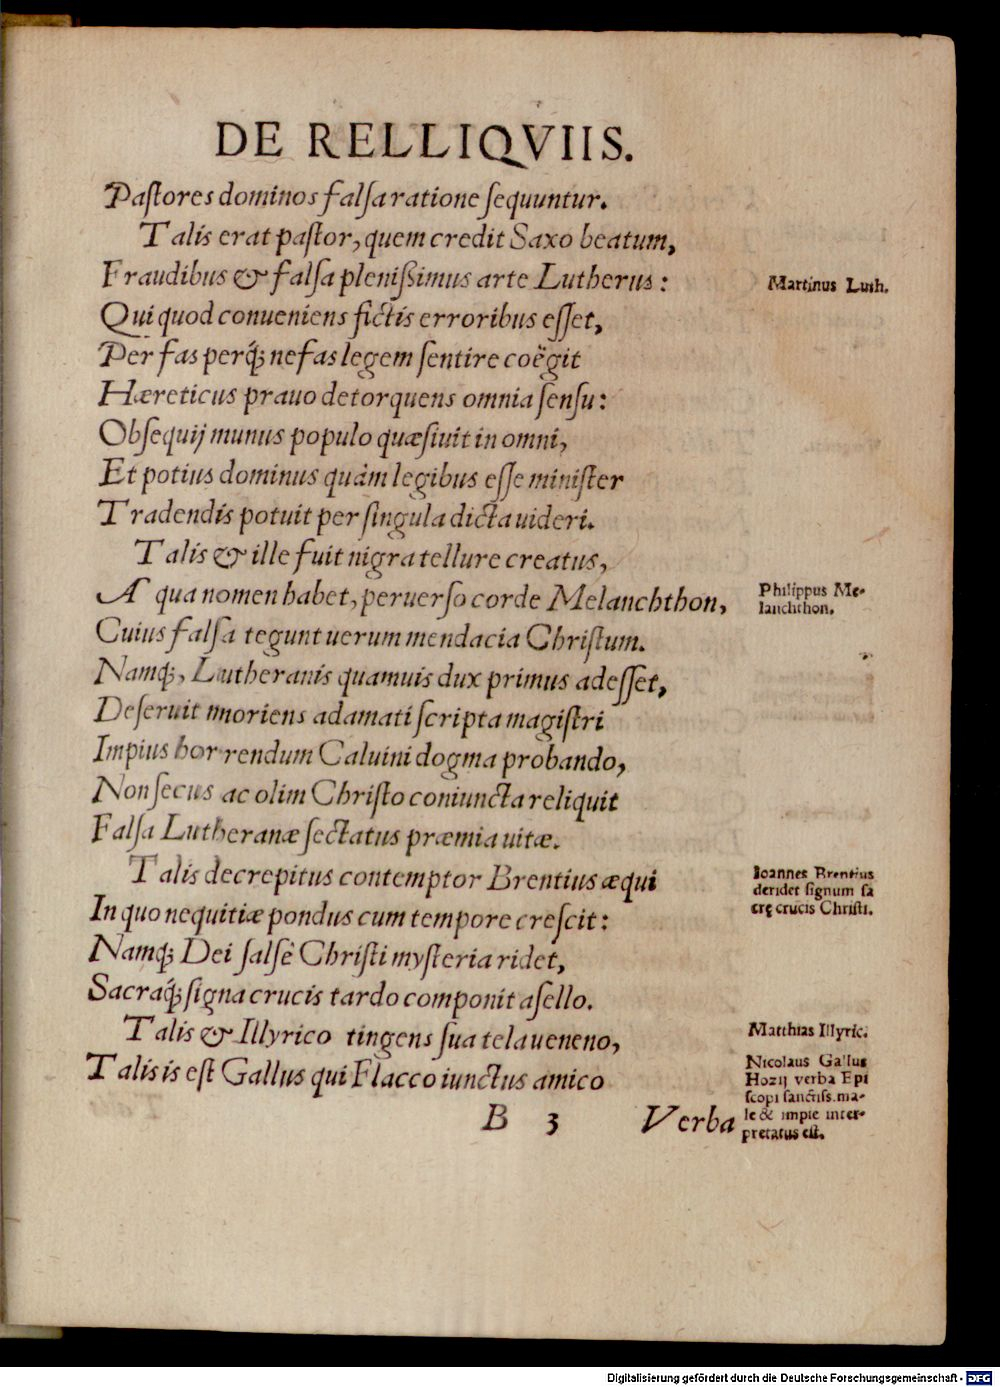 DE RELLIQVIIS.
Paſtores dominos falſa ratione ſequuntur.
Talis erat paſtor, quem credit Saxo beatum,
Fraudibus & falſa pleniſsimus arte Lutherus:
Martinus Luth.
Qui quod conueniens fictis erroribus eſſet,
Per fas perq́; nefas legem ſentire coëgit
Hæreticus prauo detorquens omnia ſenſu:
Obſequij munus populo quæſiuit in omni,
Et potius dominus quàm legibus eſſe miniſter
Tradendis potuit per ſingula dicta uideri.
Talis & ille fuit nigra tellure creatus,
A qua nomen habet, peruerſo corde Melanchthon,
Philippus Me-
lanchthon.
Cuius falſa tegunt uerum mendacia Chriſtum.
Namq́;, Lutheranis quamuis dux primus adeſſet,
Deſeruit moriens adamati ſcripta magiſtri
Impius horrendum Caluini dogma probando,
Non ſecus ac olim Chriſto coniuncta reliquit
Falſa Lutheranæ ſectatus præmia uitæ.
Talis decrepitus contemptor Brentius æqui
Ioannes Brentius
deridet ſignum ſa
crę crucis Chriſti.
In quo nequitiæ pondus cum tempore creſcit:
Namq́; Dei ſalſè Chriſti myſteria ridet,
Sacraq́; ſigna crucis tardo componit aſello.
Talis & Illyrico tingens ſua tela ueneno,
Matthias Illyric.
Talis is eſt Gallus qui Flacco iunctus amico
Nicolaus Gallus
Hozij verba Epi
ſcopi ſanctiſs. ma-
le & impie inter-
pretatus eſt.
B 3 Verba
Digitalisierung gefördert durch die Deutsche Forschungsgemeinschaft - DFG